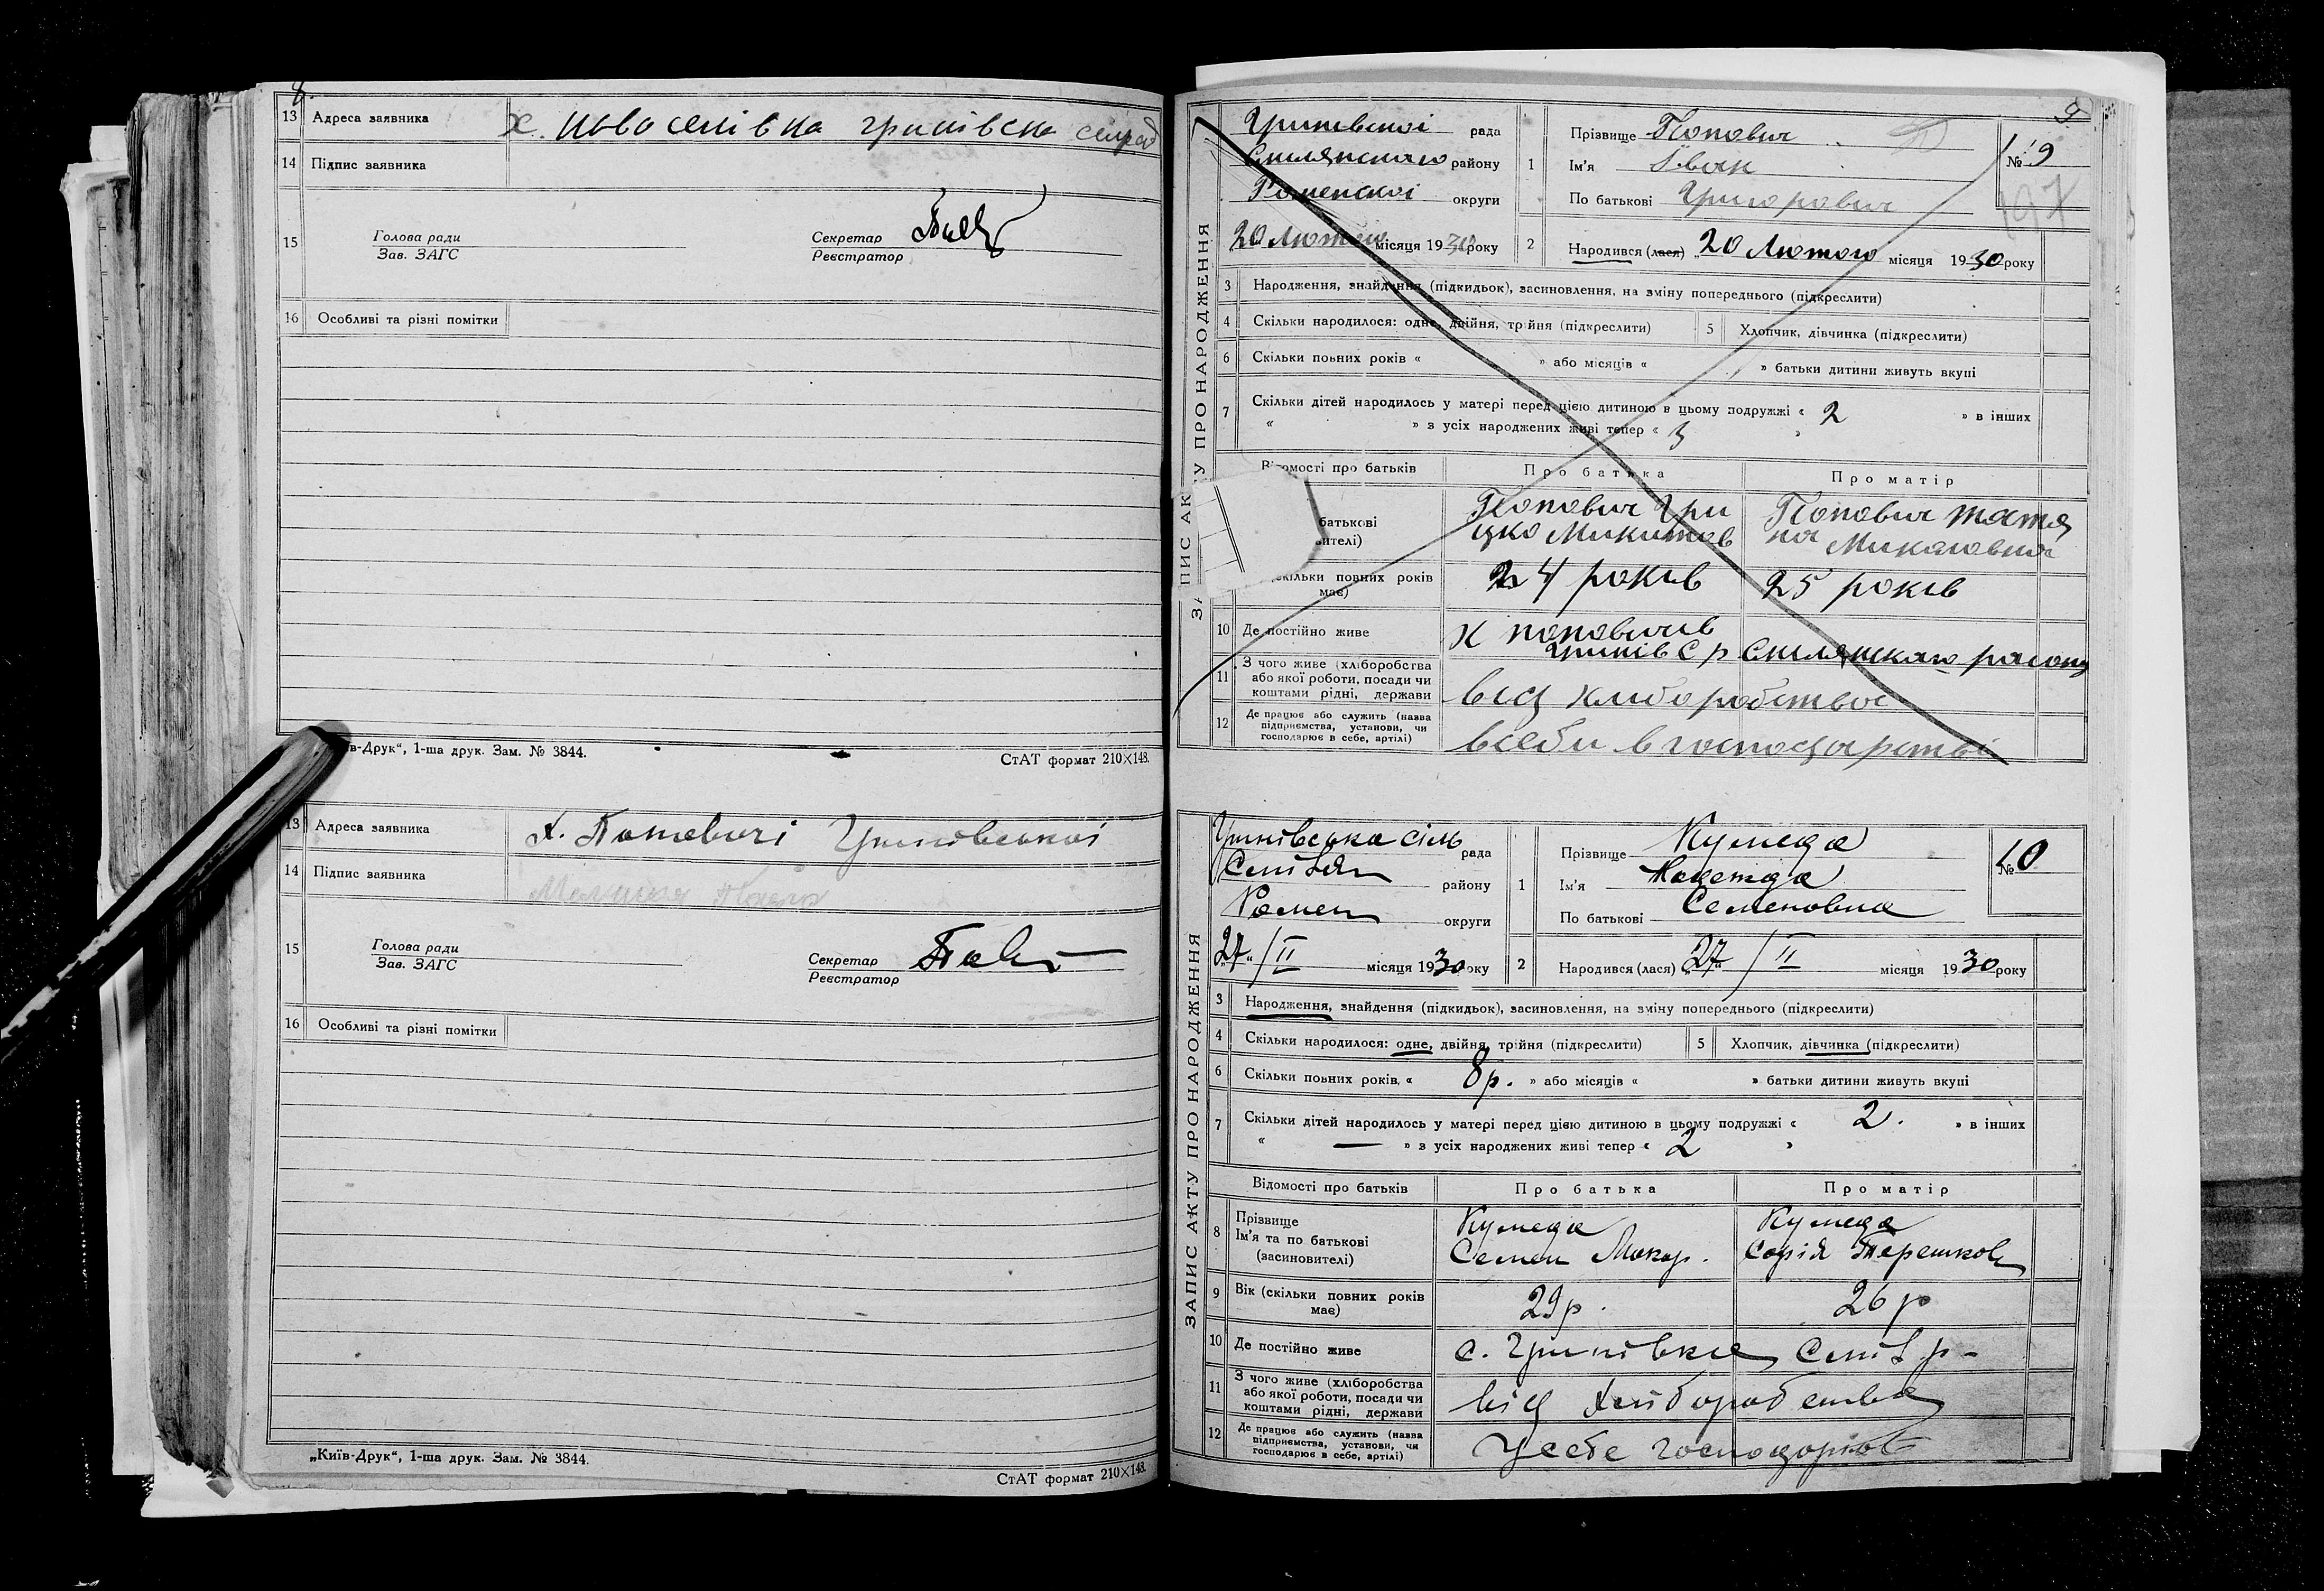 8.
13 Адреса заявника х. новоселівка грипівська сілрад
14 Підпис заявника
15 Голова ради Секретар
Зав. ЗАГС Реєстратор
16 Особливі та різні помітки
в-Друк“, 1-ша друк. Зам. № 3844.
СтАТ формат 210×148.
13 Адреса заявника х. Поповичі
14 Підпис заявника
15 Голова ради Секретар
Зав. ЗАГС Реєстратор
16 Особливі та різні помітки
„Київ-Друк“, 1-ша друк. Зам. № 3844.
СтАТ формат 210×148.
9
ЗАПИС АКТУ ПРО НАРОДЖЕННЯ
рада
району
Роменскої округи
20 Лютого місяця 1930 року
1 Прізвище Попович
Ім'я Іван
По батькові Григорович
№ 9
197
2 Народився (лася) 20 Лютого місяця 1930 року
3 Народження, знайдення (підкидьок), засиновлення, на зміну попереднього (підкреслити)
4 Скільки народилося: одне, двійня, трійня (підкреслити) 5 Хлопчик, дівчинка (підкреслити)
6 Скільки повних років « » або місяців « » батьки дитини живуть вкупі
7 Скільки дітей народилось у матері перед цією дитиною в цьому подружжі « 2 » в інших
« » з усіх народжених живі тепер « 3 »
Відомості про батьків Про батька Про матір
батькові Попович Гри Попович Татя
вителі) цко Микитов на Миколовна
скільки повних років 24 років 25 років
має)
10 Де постійно живе х поповичів
11 З чого живе (хліборобства
або якої роботи, посади чи
коштами рідні, держави від хлиборобства
12 Де працює або служить (назва
підприємства, установи, чи
господарює в себе, артілі) всеби в господарстві
ЗАПИС АКТУ ПРО НАРОДЖЕННЯ
рада
району
Ромен округи
„27“ / II місяця 1930 року
1 Прізвище Кумеда
Ім'я
По батькові Семеновна
№ 10
2 Народився (лася) „27“ / II місяця 1930 року
3 Народження, знайдення (підкидьок), засиновлення, на зміну попереднього (підкреслити)
4 Скільки народилося: одне, двійня, трійня (підкреслити) 5 Хлопчик, дівчинка (підкреслити)
6 Скільки повних років, « 8 р. » або місяців « » батьки дитини живуть вкупі
7 Скільки дітей народилось у матері перед цією дитиною в цьому подружжі « 2. » в інших
« — » з усіх народжених живі тепер « 2 »
Відомості про батьків Про батька Про матір
8 Прізвище Кумеда Кумеда
Ім'я та по батькові Семен Макар. Софія Терешков
(засиновителі)
9 Вік (скільки повних років 29 р. 26 р
має)
10 Де постійно живе
11 З чого живе (хліборобства
або якої роботи, посади чи
коштами рідні, держави від Хлібороб ства
12 Де працює або служить (назва
підприємства, установи, чи
господарює в себе, артілі) У себе господарює